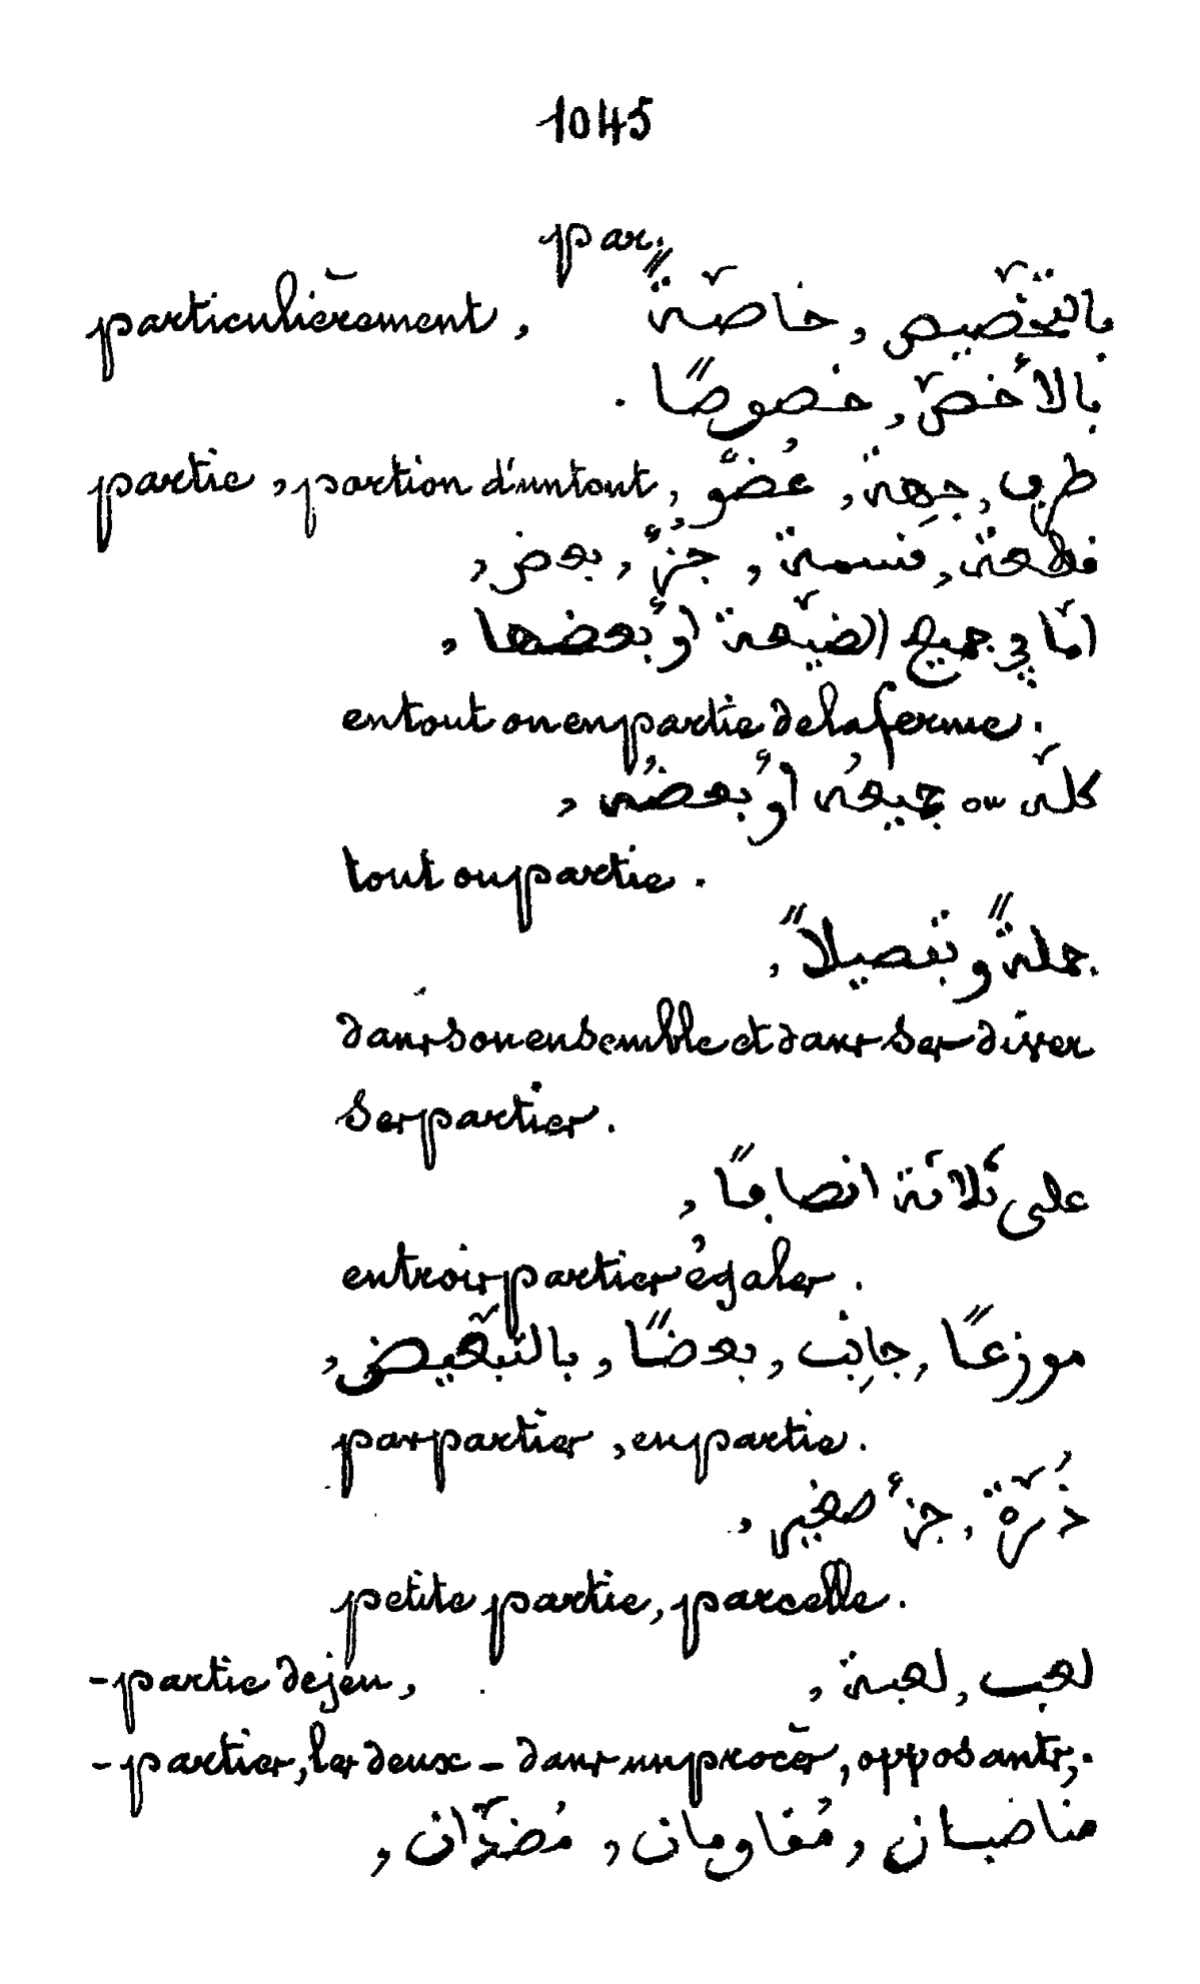 1045
par.
particulièrement, بالتّخصيص, خاصّةً
بالأخصّ, خصوصًا.
partie, portion d'un tout, طرف, جِهة, عُضوٌ,
قطعة, قسمة, جُزءٌ, بعض,
امّا في جميع الضيّعة او بعضها,
en tout ou en partie de la ferme.
كلّه ou جميعُه أو بعضُه,
tout ou partie.
جملةً وتفصيلاً,
dans son ensemble et dans ses diver
ses parties.
على ثَلاثَة انصافًا,
en trois parties égales.
موزعًا, جانب, بعضًا, بالتّبعيض,
par parties, en partie.
ذُرّة, جزء صغير,
petite partie, parcelle.
- partie de jeu, لعب, لعبة,
- parties, les deux - dans un procès, opposants,
مناضبان, مُقاومان, مُضدّان,